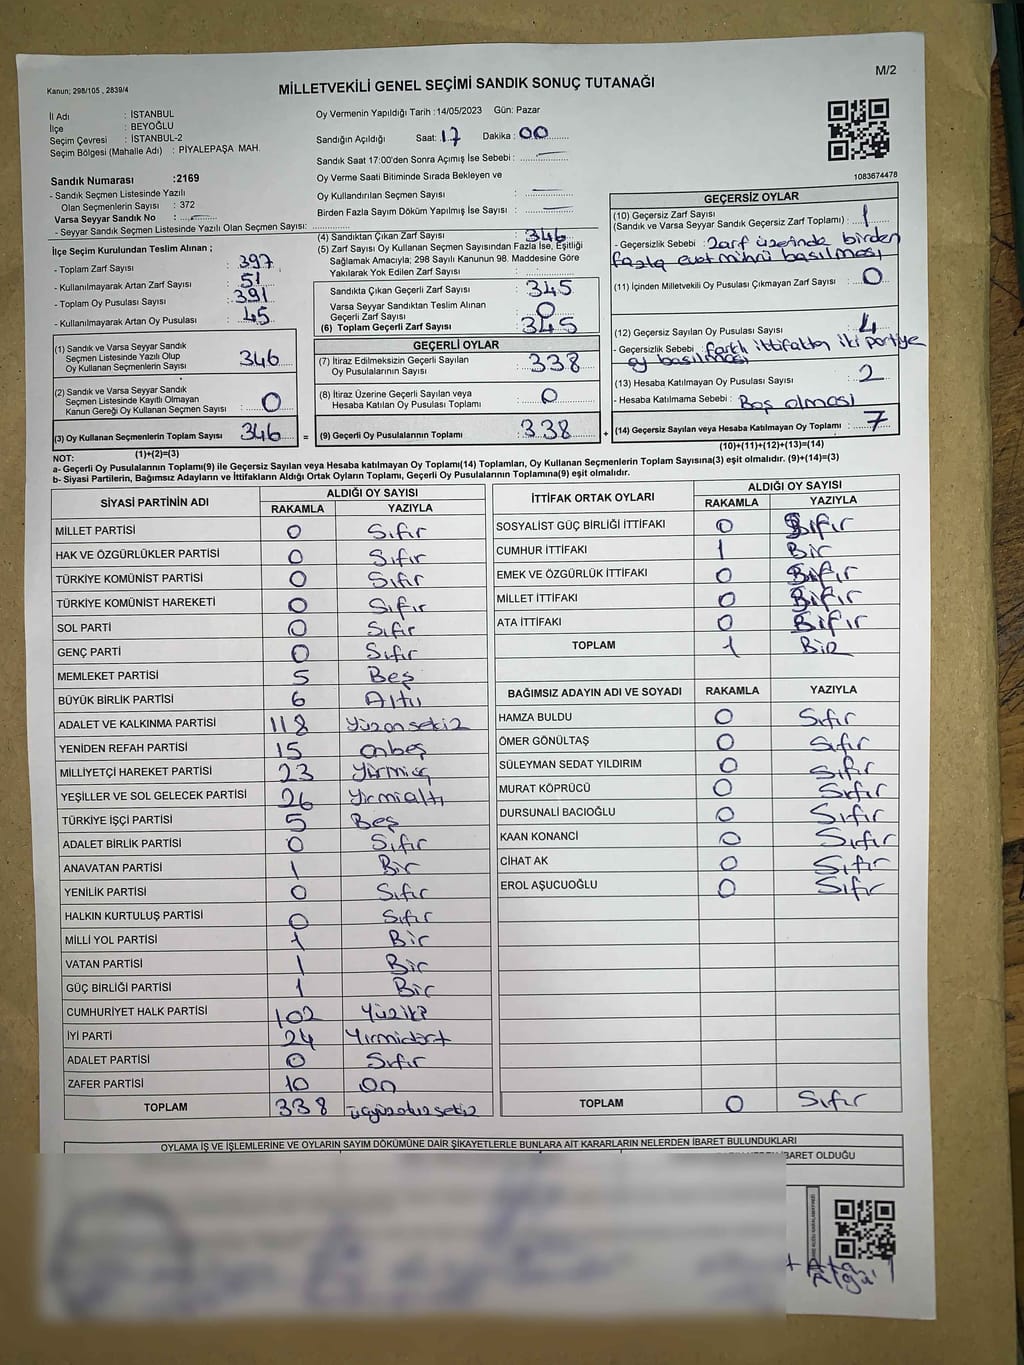 M/2
Kanun; 298/105 , 2839/4
MİLLETVEKİLİ GENEL SEÇİMİ SANDIK SONUÇ TUTANAĞI
İl Adı : İSTANBUL
İlçe : BEYOĞLU
Seçim Çevresi : İSTANBUL-2
Seçim Bölgesi (Mahalle Adı) : PİYALEPAŞA MAH.
Sandık Numarası :2169
- Sandık Seçmen Listesinde Yazılı
Olan Seçmenlerin Sayısı : 372
Varsa Seyyar Sandık No :
- Seyyar Sandık Seçmen Listesinde Yazılı Olan Seçmen Sayısı:
Oy Vermenin Yapıldığı Tarih :14/05/2023 Gün: Pazar
Sandığın Açıldığı Saat: 17 Dakika : 00
Sandık Saat 17:00'den Sonra Açımış İse Sebebi :
Oy Verme Saati Bitiminde Sırada Bekleyen ve
Oy Kullandırılan Seçmen Sayısı :
Birden Fazla Sayım Döküm Yapılmış İse Sayısı :
1083674478
İlçe Seçim Kurulundan Teslim Alınan ;
- Toplam Zarf Sayısı : 397
- Kullanılmayarak Artan Zarf Sayısı : 51
- Toplam Oy Pusulası Sayısı : 391
- Kullanılmayarak Artan Oy Pusulası : 45
(1) Sandık ve Varsa Seyyar Sandık
Seçmen Listesinde Yazılı Olup
Oy Kullanan Seçmenlerin Sayısı : 346
(2) Sandık ve Varsa Seyyar Sandık
Seçmen Listesinde Kayıtlı Olmayan
Kanun Gereği Oy Kullanan Seçmen Sayısı : 0
(3) Oy Kullanan Seçmenlerin Toplam Sayısı : 346
(1)+(2)=(3)
(4) Sandıktan Çıkan Zarf Sayısı : 346
(5) Zarf Sayısı Oy Kullanan Seçmen Sayısından Fazla İse, Eşitliği
Sağlamak Amacıyla; 298 Sayılı Kanunun 98. Maddesine Göre
Yakılarak Yok Edilen Zarf Sayısı :
Sandıkta Çıkan Geçerli Zarf Sayısı : 345
Varsa Seyyar Sandıktan Teslim Alınan
Geçerli Zarf Sayısı : 0
(6) Toplam Geçerli Zarf Sayısı : 345
GEÇERLİ OYLAR
(7) İtiraz Edilmeksizin Geçerli Sayılan
Oy Pusulalarının Sayısı : 338
(8) İtiraz Üzerine Geçerli Sayılan veya
Hesaba Katılan Oy Pusulası Toplamı : 0
= (9) Geçerli Oy Pusulalarının Toplamı : 338 +
GEÇERSİZ OYLAR
(10) Geçersiz Zarf Sayısı
(Sandık ve Varsa Seyyar Sandık Geçersiz Zarf Toplamı) : 1
- Geçersizlik Sebebi : Zarf üzerinde birden
fazla evet mührü basılması
(11) İçinden Milletvekili Oy Pusulası Çıkmayan Zarf Sayısı : 0
(12) Geçersiz Sayılan Oy Pusulası Sayısı : 4
- Geçersizlik Sebebi : farklı ittifaktan iki partiye
oy basılması
(13) Hesaba Katılmayan Oy Pusulası Sayısı : 2
- Hesaba Katılmama Sebebi : Boş olması
(14) Geçersiz Sayılan veya Hesaba Katılmayan Oy Toplamı : 7
(10)+(11)+(12)+(13)=(14)
NOT:
a- Geçerli Oy Pusulalarının Toplamı(9) ile Geçersiz Sayılan veya Hesaba katılmayan Oy Toplamı(14) Toplamları, Oy Kullanan Seçmenlerin Toplam Sayısına(3) eşit olmalıdır. (9)+(14)=(3)
b- Siyasi Partilerin, Bağımsız Adayların ve İttifakların Aldığı Ortak Oyların Toplamı, Geçerli Oy Pusulalarının Toplamına(9) eşit olmalıdır.
SİYASİ PARTİNİN ADI ALDIĞI OY SAYISI
RAKAMLA YAZIYLA
MİLLET PARTİSİ 0 Sıfır
HAK VE ÖZGÜRLÜKLER PARTİSİ 0 Sıfır
TÜRKİYE KOMÜNİST PARTİSİ 0 Sıfır
TÜRKİYE KOMÜNİST HAREKETİ 0 Sıfır
SOL PARTİ 0 Sıfır
GENÇ PARTİ 0 Sıfır
MEMLEKET PARTİSİ 5 Beş
BÜYÜK BİRLİK PARTİSİ 6 Altı
ADALET VE KALKINMA PARTİSİ 118 Yüzonsekiz
YENİDEN REFAH PARTİSİ 15 onbeş
MİLLİYETÇİ HAREKET PARTİSİ 23 Yirmiüç
YEŞİLLER VE SOL GELECEK PARTİSİ 26 Yirmialtı
TÜRKİYE İŞÇİ PARTİSİ 5 Beş
ADALET BİRLİK PARTİSİ 0 Sıfır
ANAVATAN PARTİSİ 1 Bir
YENİLİK PARTİSİ 0 Sıfır
HALKIN KURTULUŞ PARTİSİ 0 Sıfır
MİLLİ YOL PARTİSİ 1 Bir
VATAN PARTİSİ 1 Bir
GÜÇ BİRLİĞİ PARTİSİ 1 Bir
CUMHURİYET HALK PARTİSİ 102 Yüziki
İYİ PARTİ 24 Yirmidört
ADALET PARTİSİ 0 Sıfır
ZAFER PARTİSİ 10 On
TOPLAM 338 üçyüzotuzsekiz
İTTİFAK ORTAK OYLARI ALDIĞI OY SAYISI
RAKAMLA YAZIYLA
SOSYALİST GÜÇ BİRLİĞİ İTTİFAKI 0 Sıfır
CUMHUR İTTİFAKI 1 Bir
EMEK VE ÖZGÜRLÜK İTTİFAKI 0 Sıfır
MİLLET İTTİFAKI 0 Sıfır
ATA İTTİFAKI 0 Sıfır
TOPLAM 1 Bir
BAĞIMSIZ ADAYIN ADI VE SOYADI RAKAMLA YAZIYLA
HAMZA BULDU 0 Sıfır
ÖMER GÖNÜLTAŞ 0 Sıfır
SÜLEYMAN SEDAT YILDIRIM 0 Sıfır
MURAT KÖPRÜCÜ 0 Sıfır
DURSUNALİ BACIOĞLU 0 Sıfır
KAAN KONANCİ 0 Sıfır
CİHAT AK 0 Sıfır
EROL AŞUCUOĞLU 0 Sıfır
TOPLAM 0 Sıfır
OYLAMA İŞ VE İŞLEMLERİNE VE OYLARIN SAYIM DÖKÜMÜNE DAİR ŞİKAYETLERLE BUNLARA AİT KARARLARIN NELERDEN İBARET BULUNDUKLARI
İBARET OLDUĞU